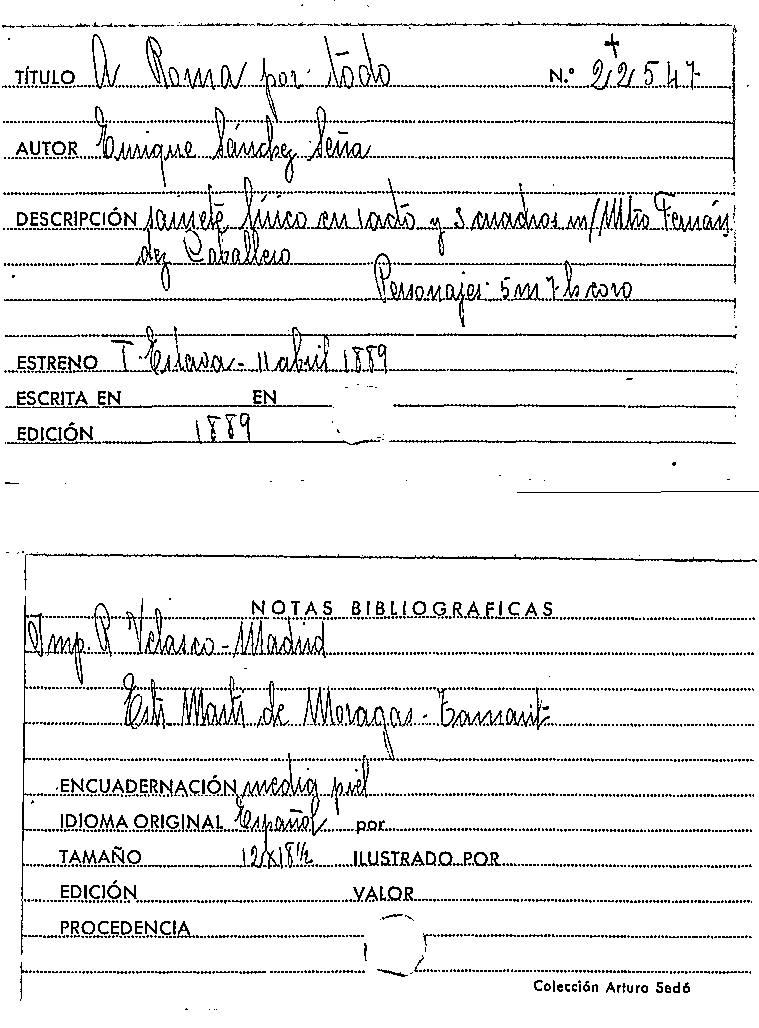 TÍTULO A Roma por todo N.º 22547
AUTOR Enrique Sánchez Seña
DESCRIPCIÓN sainete lírico en 1 acto y 3 cuadros m/ Mtro Fernán
dez Caballero
Personajes: 5 m 7 h coro
ESTRENO T. Eslava - 11 abril 1889
ESCRITA EN EN
EDICIÓN 1889
NOTAS BIBLIOGRAFICAS
Imp. R Velasco - Madrid
Marti de Moragas - Tamarit
ENCUADERNACIÓN media piel
IDIOMA ORIGINAL Español por
TAMAÑO 12x18½ ILUSTRADO POR
EDICIÓN VALOR
PROCEDENCIA
Colección Arturo Sedó